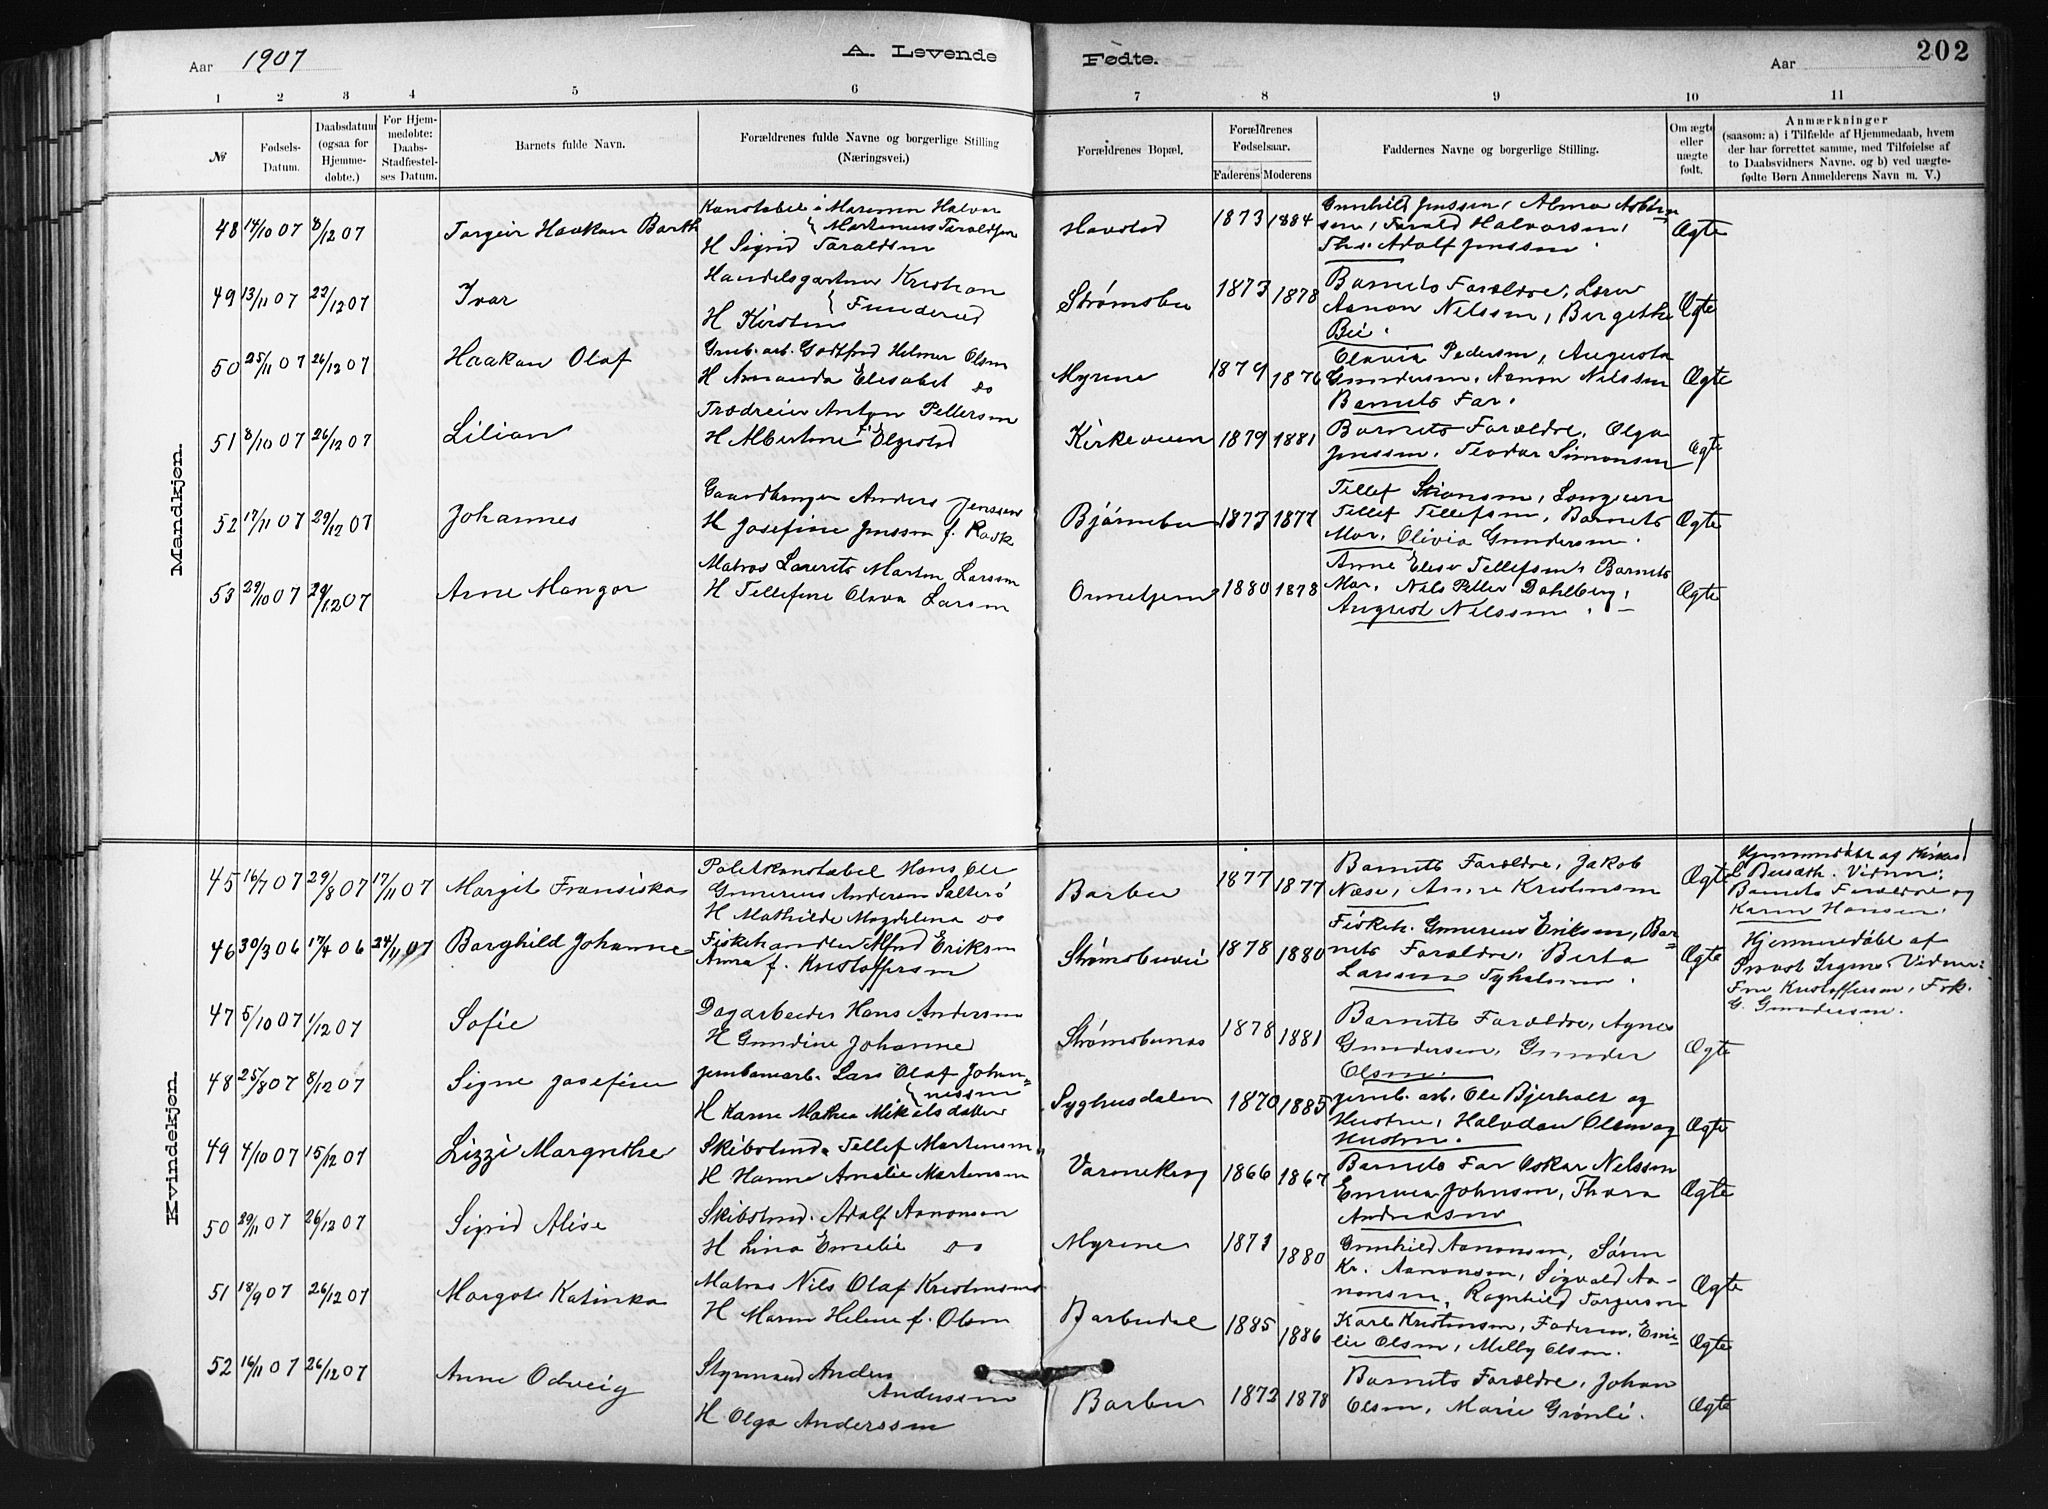 Aar 1907 A. Levende Fødte. Aar 202
1 2 3 4 5 6 7 8 9 10 11
№
Fødsels-Datum.
Daabsdatum (ogsaa for Hjemme-døbte.)
For Hjem-medøbte: Daabs-Stadfæstel-ses Datum.
Barnets fulde Navn.
Forældrenes fulde Navne og borgerlige Stilling (Næringsvei.)
Forældrenes Bopæl.
Forældrenes Fødselsaar.
Faderens Moderens
Faddernes Navne og borgerlige Stilling.
Om ægte eller uægte født.
Anmærkninger
(saasom: a) i Tilfælde af Hjemmedaab, hvem
der har forrettet samme, med Tilføielse af
to Daabsvidners Navne. og b) ved uægte-
fødte Børn Anmelderens Navn m. V.)
Mandkjøn.
48 14/10 07 8/12 07 Torgeir Haakon Barth
Konstabel i Marinen Halvor
Martinius Taraldsen
H Sigrid Taraldsen
Havstad 1873 1884
Gunhild Jenssen, Alma Asbørn-
sen, Tarald Halvorsen,
Ths. Adolf Jenssen.
Ægte
49 13/11 07 22/12 07 Ivar
Handelsgartner Kristian
H Kirsten
Strømsbu 1873 1878
Barnets Forældre,
Aanon Nilssen, Bergithe
Bie.
Ægte
50 25/11 07 26/12 07 Haakon Olaf
Grub. arb. Godtfred Helmer Olsen
H Amanda Elisabet do
Myrene 1879 1876
Olavia Pedersen, Augusta
Gundersen, Aanon Nilssen
Barnets Far.
Ægte
51 8/10 07 26/12 07 Lilian
Trædreier Anton Pettersen
H Albertine f. Elgestad
Kirkeveien 1879 1881
Barnets Forældre, Olga
Jenssen, Teodor Simonsen
Ægte
52 17/11 07 29/12 07 Johannes
Gaardbruger Anders Jenssen
H Josefine Jenssen f. Kodk
Bjørnebu 1873 1877
Tellef
Tellef Tellefsen, Barnets
Mor, Olivia Gundersen.
Ægte
53 29/10 07 29/12 07 Arne Mangor
Matros Laurits Martin Larsen
H Tellefine Olava Larsen
Ormetjern 1880 1878
Anne Elise Tellefsen, Barnets
Mor, Nils Petter Dahlberg,
August Nilssen. –
Ægte
Kvindekjøn.
45 16/7 07 29/8 07 17/11 07 Margit Fransiska
Politkonstabel Hans Ole
Gunerius Andersen Salterø
H Mathilde Magdalena do
Barbu 1877 1877
Barnets Forældre, Jakob
Næse, Anna Kristensen
Ægte
Hjemmedøbt af
Vidner:
Barnets Forældre og
Karen Hansen.
46 30/3 06 17/4 06 24/11 07 Borghild Johanne
Fiskehandler Alfred Eriksen
Anna f. Kristoffersen
Strømsbuvei 1878 1880
Fiskeh. Gunerius Eriksen, Bar-
nets Forældre, Berta
Larssen Tyholmen.
Ægte
Hjemmedøbt af
Provst Irgens. Vidner:
Fru Kristoffersen, Frk.
G. Gundersen.
47 5/10 07 1/12 07 Sofie
Dagarbeider Hans Andersen
H Gundine Johanne
Strømsbunes 1878 1881
Barnets Forældre, Agnes
Gundersen, Gunder
Olsen.
Ægte
48 25/8 07 8/12 07 Signe Josefine
Jernbanearb. Lars Olaf Johan-
nessen
H Karine Mathea Mikalsdatter
Syghusdalen 1870 1885
Jernb. arb. Ole Bjerholt og
Hustru, Halvdan Olsen og
Hustru.
Ægte
49 4/10 07 15/12 07 Lizzi Margrethe
Skibstmd. Tellef Martensen,
H Hanne Amalie Martensen
Varnekrog 1866 1867
Barnets Far Oskar Nilssen
Emma Johnsen, Thora
Andreasen
Ægte
50 29/11 07 26/12 07 Sigrid Alise
Skibstmd. Adolf Aanonsen
H Lina Emelie do
Myrene 1871 1880
Gunhild Aanonsen, Søren
Kr. Aanonsen, Sigvald Aa-
nonsen, Ragnhild Torgersen
Ægte
51 18/9 07 26/12 07 Margot Katinka
Matros Nils Olaf Kristensen
H Maren Helene f. Olsen
Barbudal 1885 1886
Karl Kristensen, Faderen, Emi-
lie Olsen, Milly Olsen.
Ægte
52 16/11 07 26/12 07 Anne Odveig
Styrmand Anders
Anderssen
H Olga Anderssen
Barbu 1873 1878
Barnets Forældre, Johan
Olsen, Marie Grønli.
Ægte